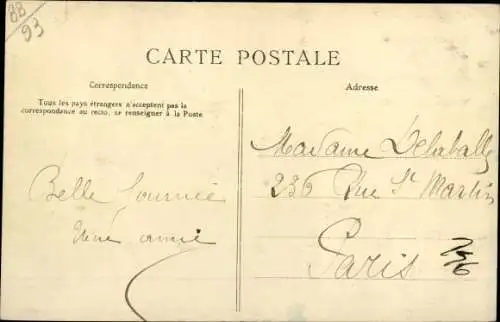 88
93
CARTE POSTALE
Correspondance
Tous les pays étrangers n'acceptent pas la
correspondance au recto, se renseigner à la Poste
Adresse
Belle Journée
amie
Madame
236 Rue St Martin
Paris